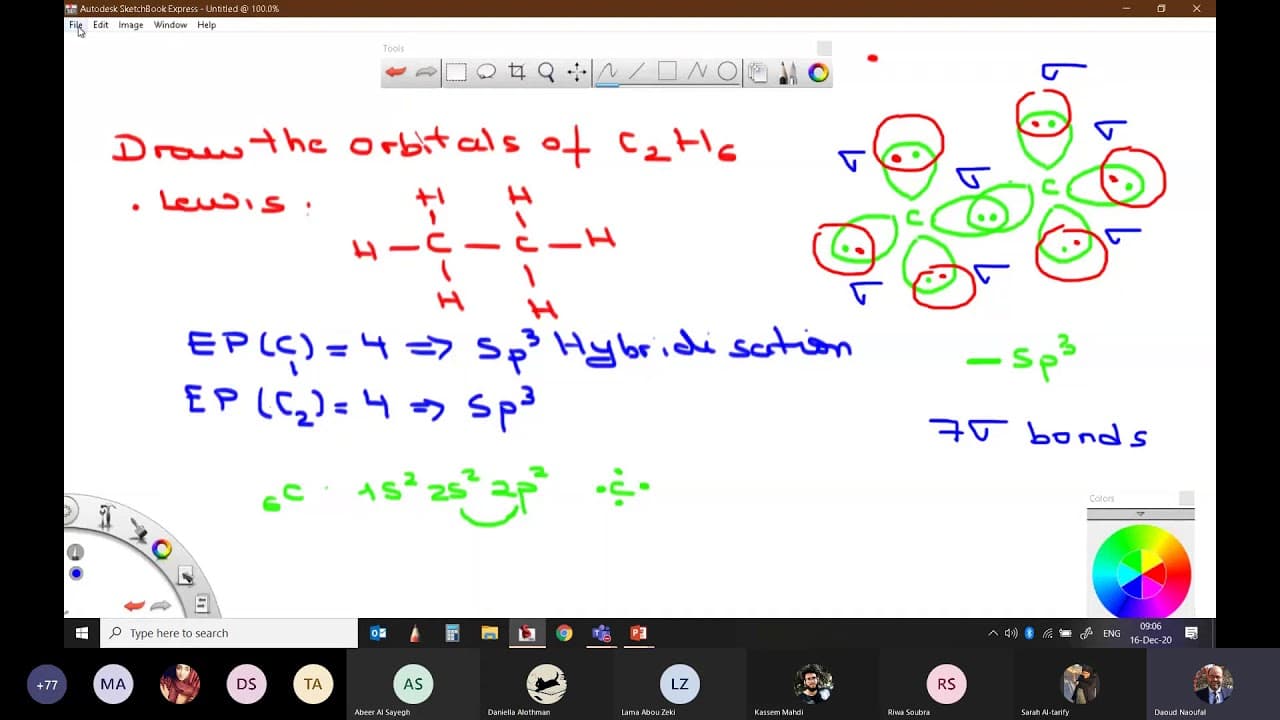 Autodesk SketchBook Express - Untitled @ 100.0%
File Edit Image Window Help
Tools
Draw the orbitals of C2H6
. Lewis :
H H
H — C — C — H
H H
EP(C1) = 4 => Sp³ Hybridisation
EP (C2) = 4 => Sp³
6C . 1S² 2S² 2p² ·C·
σ
σ σ
σ
C
C
σ
σ
σ
— Sp³
7σ bonds
Colors
Type here to search
ENG
09:06
16-Dec-20
+77 MA DS TA AS LZ RS
Abeer Al Sayegh Daniella Alothman Lama Abou Zeki Kassem Mahdi Riwa Soubra Sarah Al-tarify Daoud Naoufal